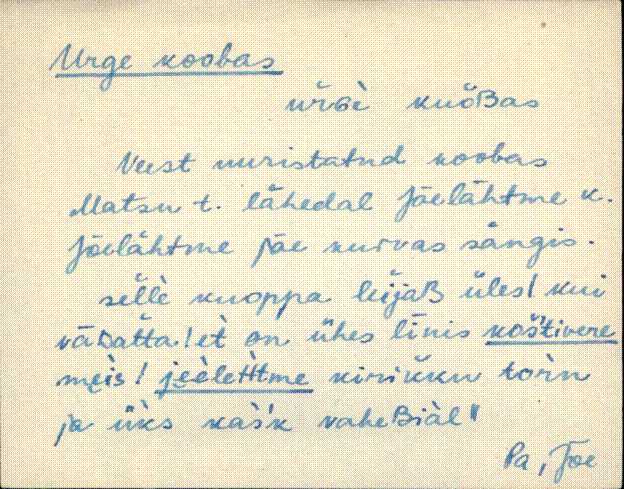 Urge koobas
ūrGè kuŏBas
Veest uuristatud koobas
Matsu t. lähedal Jõelähtme k.
Jõelähtme jõe kuivas sängis.
sēllè kuoppa leijaB üles! kui
vāDatta! èt on ühes līnis kos't'ivere
meìs! jeèlehtme kirikku torn
ja üks kas'k vaheBiàl"
Pa, Jõe